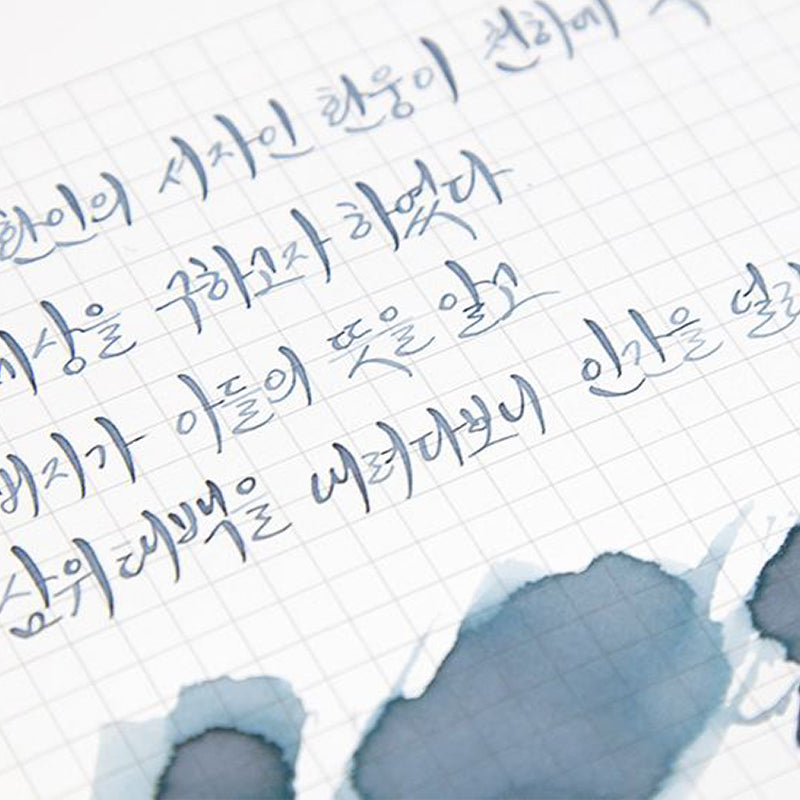 환인의 서자인 환웅이 천하에
세상을 구하고자 하였다
버지가 아들의 뜻을 알고
삼위태백을 내려다보니 인간을 널리